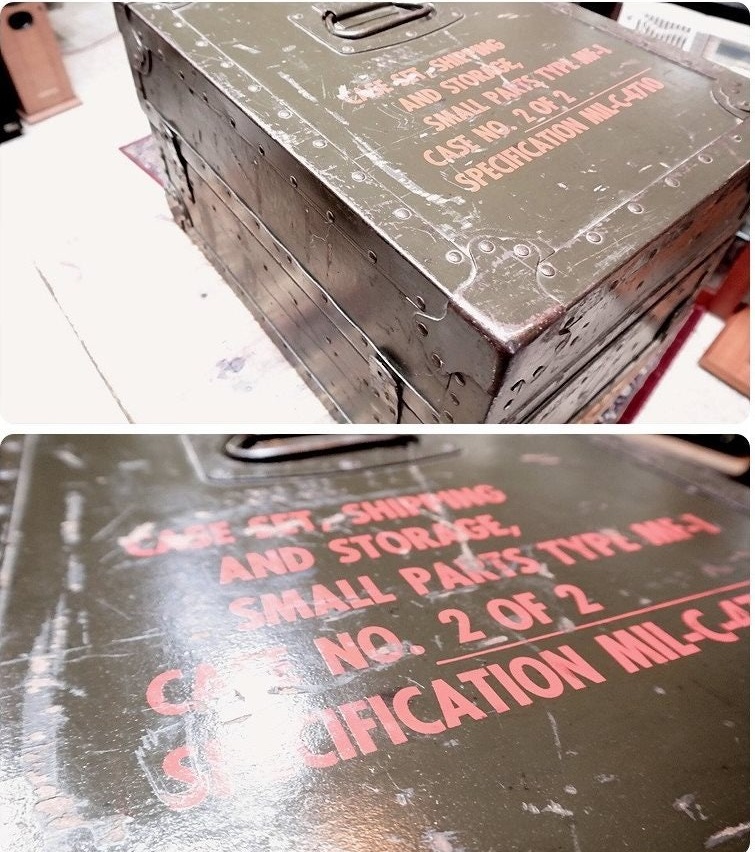 CASE SET, SHIPPING
AND STORAGE,
SMALL PARTS TYPE MF-1
CASE NO. 2 OF 2
SPECIFICATION MIL-C-4710
CASE SET, SHIPPING
AND STORAGE,
SMALL PARTS TYPE MF-1
CASE NO. 2 OF 2
SPECIFICATION MIL-C-47